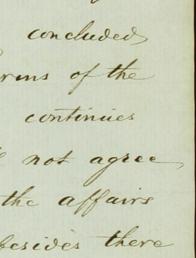 concluded,
of the
continues
not agree,
the affairs
besides there